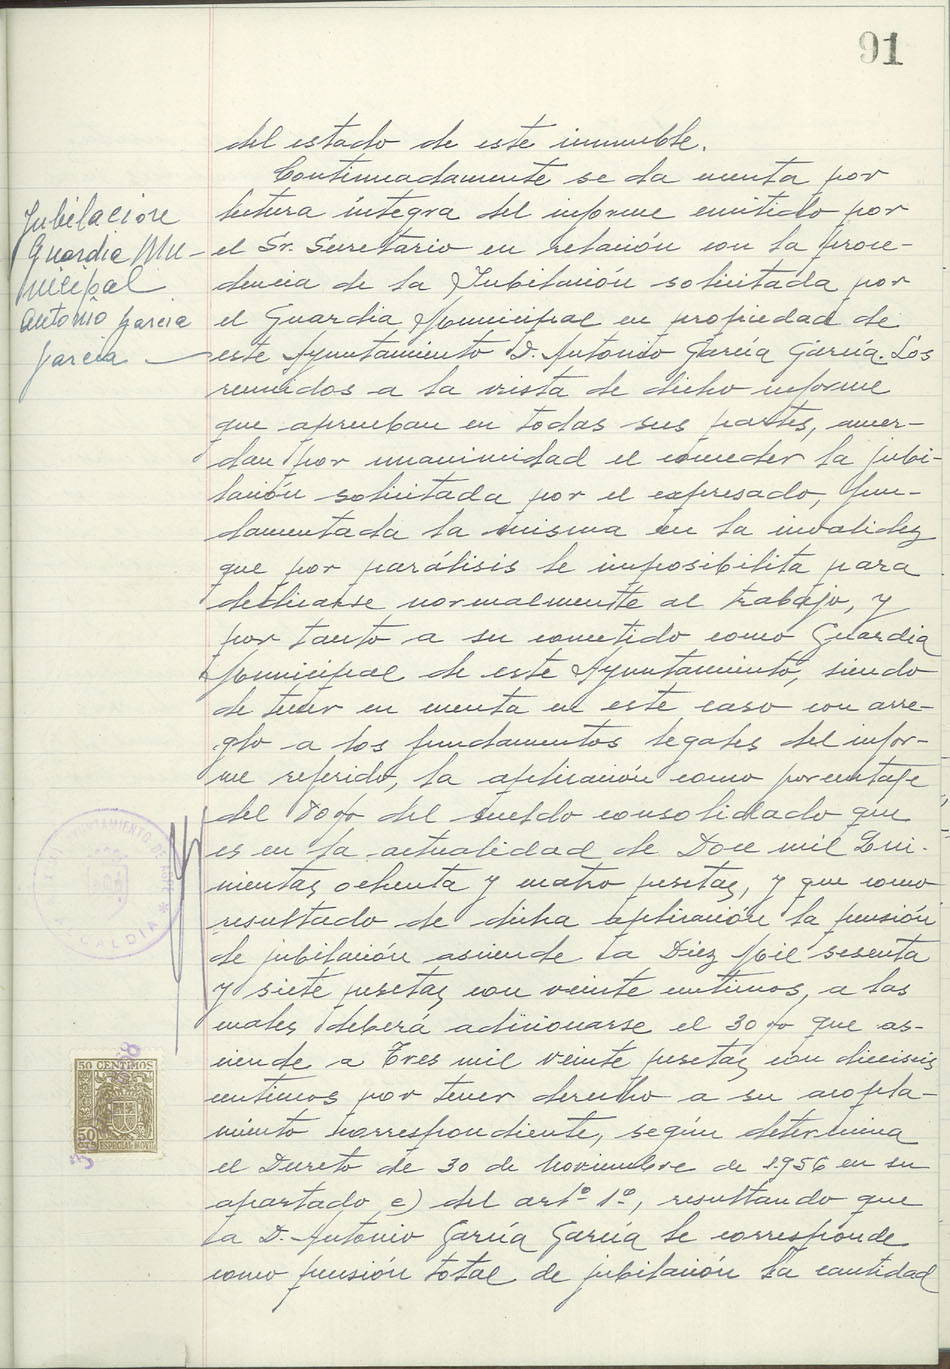 91
del estado de este inmueble.
Continuadamente se da cuenta por
lectura íntegra del informe emitido por
el Sr. Secretario en relación con la proce-
dencia de la Jubilación solicitada por
el Guardia Municipal en propiedad de
este Ayuntamiento D. Antonio García García. Los
reunidos a la vista de dicho informe
que aprueban en todas sus partes, acuer-
dan por unanimidad el conceder la jubi-
lación solicitada por el expresado, fun-
damentada la misma en la invalidez
que por parálisis le imposibilita para
dedicarse normalmente al trabajo, y
por tanto a su cometido como Guardia
Municipal de este Ayuntamiento, siendo
de tener en cuenta en este caso con arre-
glo a los fundamentos legales del infor-
me referido, la aplicación como porcentaje
del 80% del sueldo consolidado que
es en la actualidad de Doce mil Qui-
nientas ochenta y cuatro pesetas, y que como
resultado de dicha aplicación la pensión
de jubilación asciende a Diez Mil sesenta
y siete pesetas con veinte centimos, a las
cuales deberá adicionarse el 30% que as-
ciende a Tres mil veinte pesetas con dieciseis
centimos por tener derecho a su acopla-
miento correspondiente, según determina
el Decreto de 30 de Noviembre de 1.956 en su
apartado c) del artº 1º, resultando que
a D. Antonio García García le corresponde
como pensión total de jubilación la cantidad
Jubilacion
Guardia Mu-
nicipal
Antonio Garcia
Garcia
AYUNTAMIENTO DE
ALCALDIA
50 CENTIMOS
50
CTS
ESPECIAL MOVIL